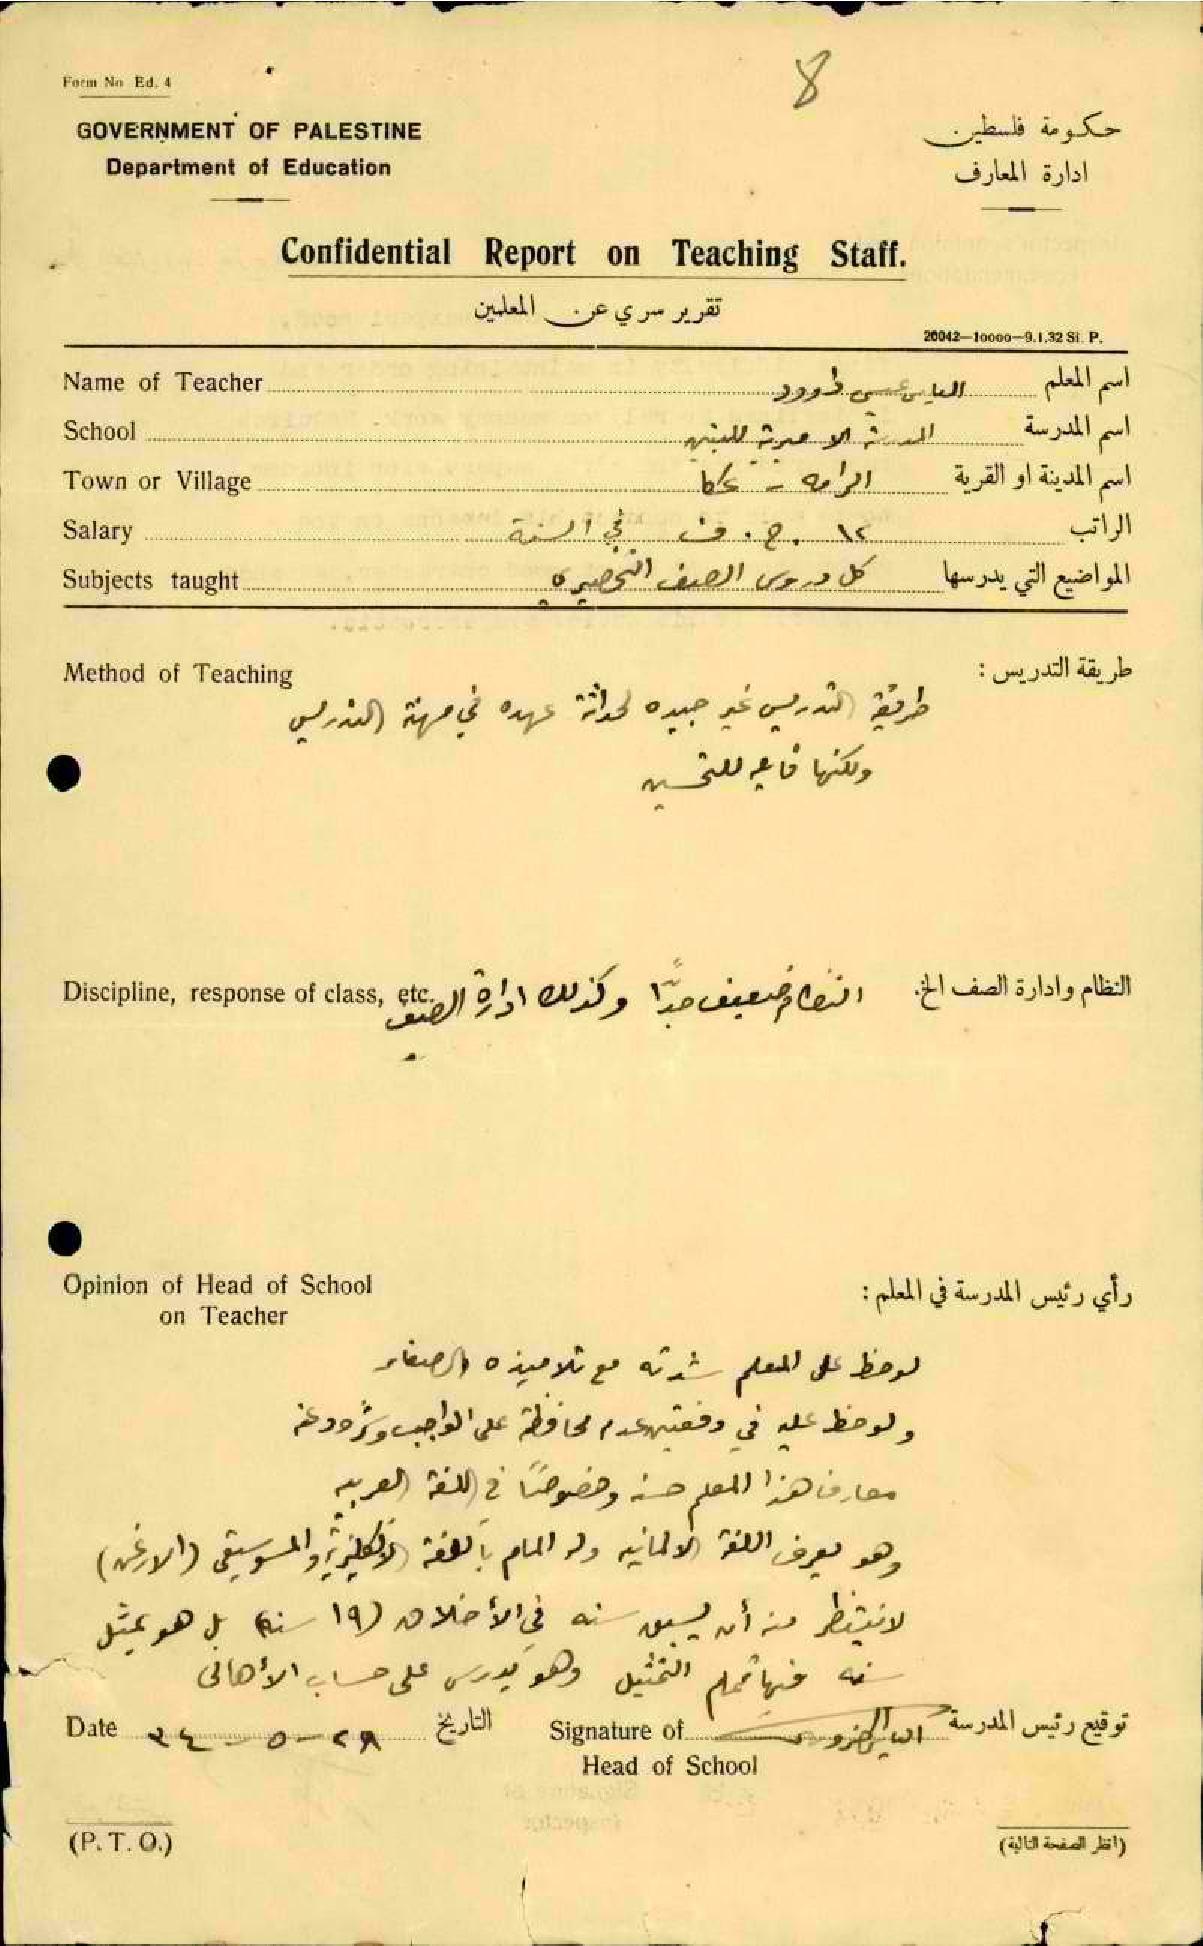 8
Form No Ed. 4
GOVERNMENT OF PALESTINE
Department of Education
حكومة فلسطين
ادارة المعارف
Confidential Report on Teaching Staff.
تقرير سري عن المعلمين
20042—10000—9.1.32 St. P.
Name of Teacher الياس عيسى داود اسم المعلم
School المدرسة الاميرية للبنين اسم المدرسة
Town or Village الرامه - عكا اسم المدينة او القرية
Salary ١٢ ج. ف في السنة الراتب
Subjects taught كل دروس الصف التحضيري المواضيع التي يدرسها
Method of Teaching طريقة التدريس :
طريقة التدريس غير جيده لحداثة عهده في مهنة التدريس
ولكنها قابله للتحسين
Discipline, response of class, etc. النظام وادارة الصف الخ.
النظام ضعيف جدًّا وكذلك ادارة الصف
Opinion of Head of School
on Teacher
رأي رئيس المدرسة في المعلم :
لوحظ على المعلم شدته مع تلاميذه الصغار
ولوحظ عليه في دفعتين عدم محافظة على الواجب
معارف هذا المعلم حسنه وخصوصًا في اللغة العربيه
وهو يعرف اللغة الالمانيه وله المام باللغة الانكليزية والموسيقى (الارغن)
لا ينتظر منه أن يسبق سنه في الأخلاق (١٩ سنة) بل هو يمثل
سنه التمثيل وهو يدرس على حساب الأهالي
Date ٢٨-٥-٣٤ التاريخ
Signature of
Head of School
الياس توقيع رئيس المدرسة
(P. T. O.)
(انظر الصفحة التالية)